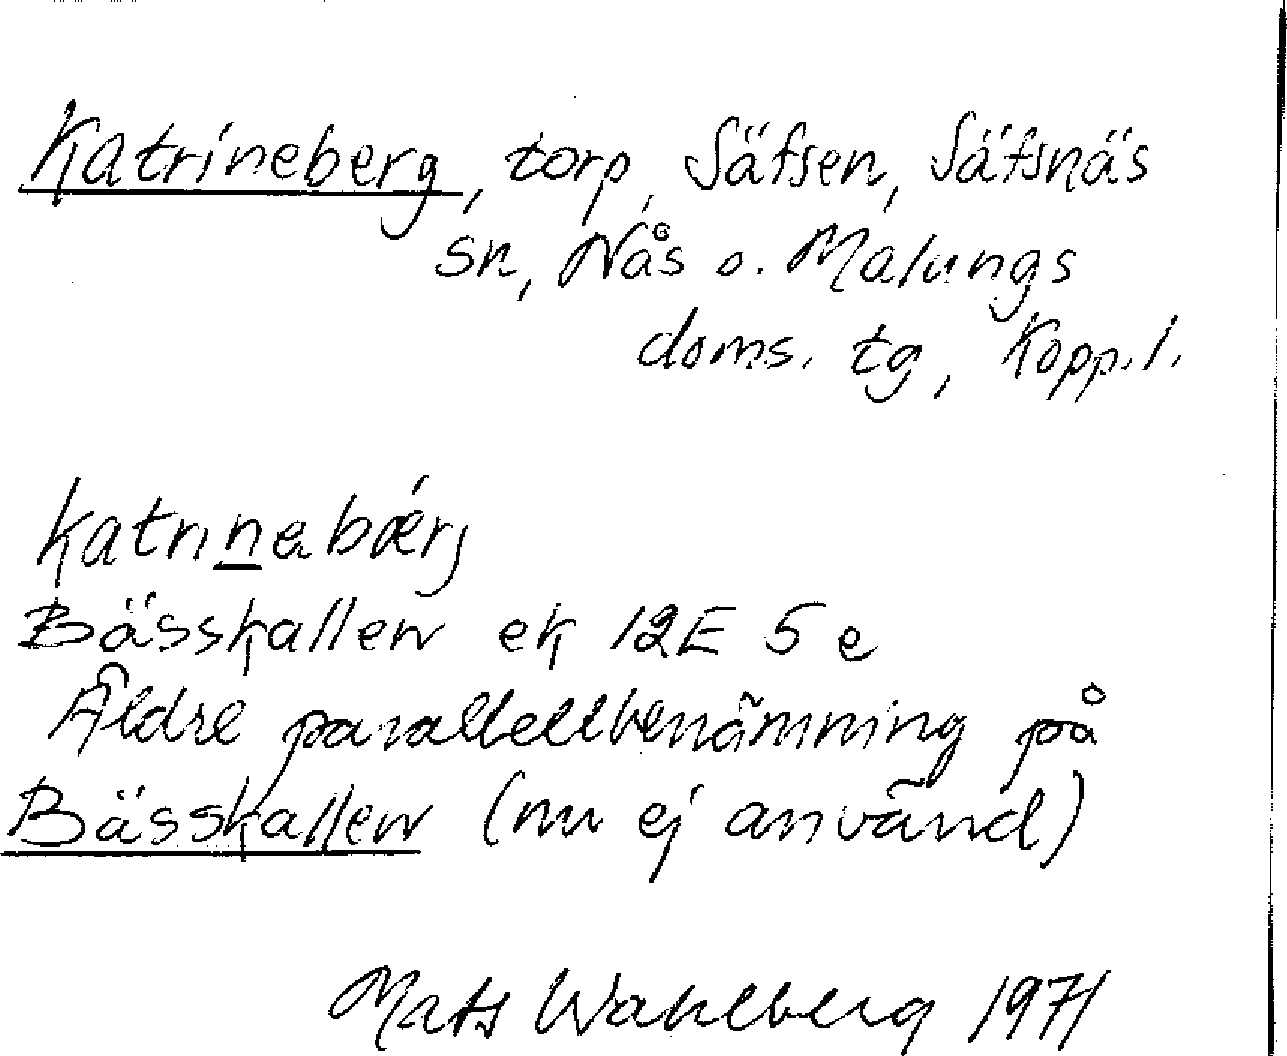 Katrineberg, torp, Säfsen, Säfsnäs
sn, Nås o. Malungs
doms. tg, Kopp. l.
katrinabǽrj
Bässkallen ek 12E 5 e
Äldre parallellbenämning på
Bässkallen (nu ej använd)
Mats Wahlberg 1971